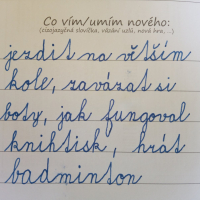 Co vím/umím nového:
(cizojazyčná slovíčka, vázání uzlů, nová hra,...)
jezdit na větším
kole, zavázat si
boty, jak fungoval
knihtisk, hrát
badminton